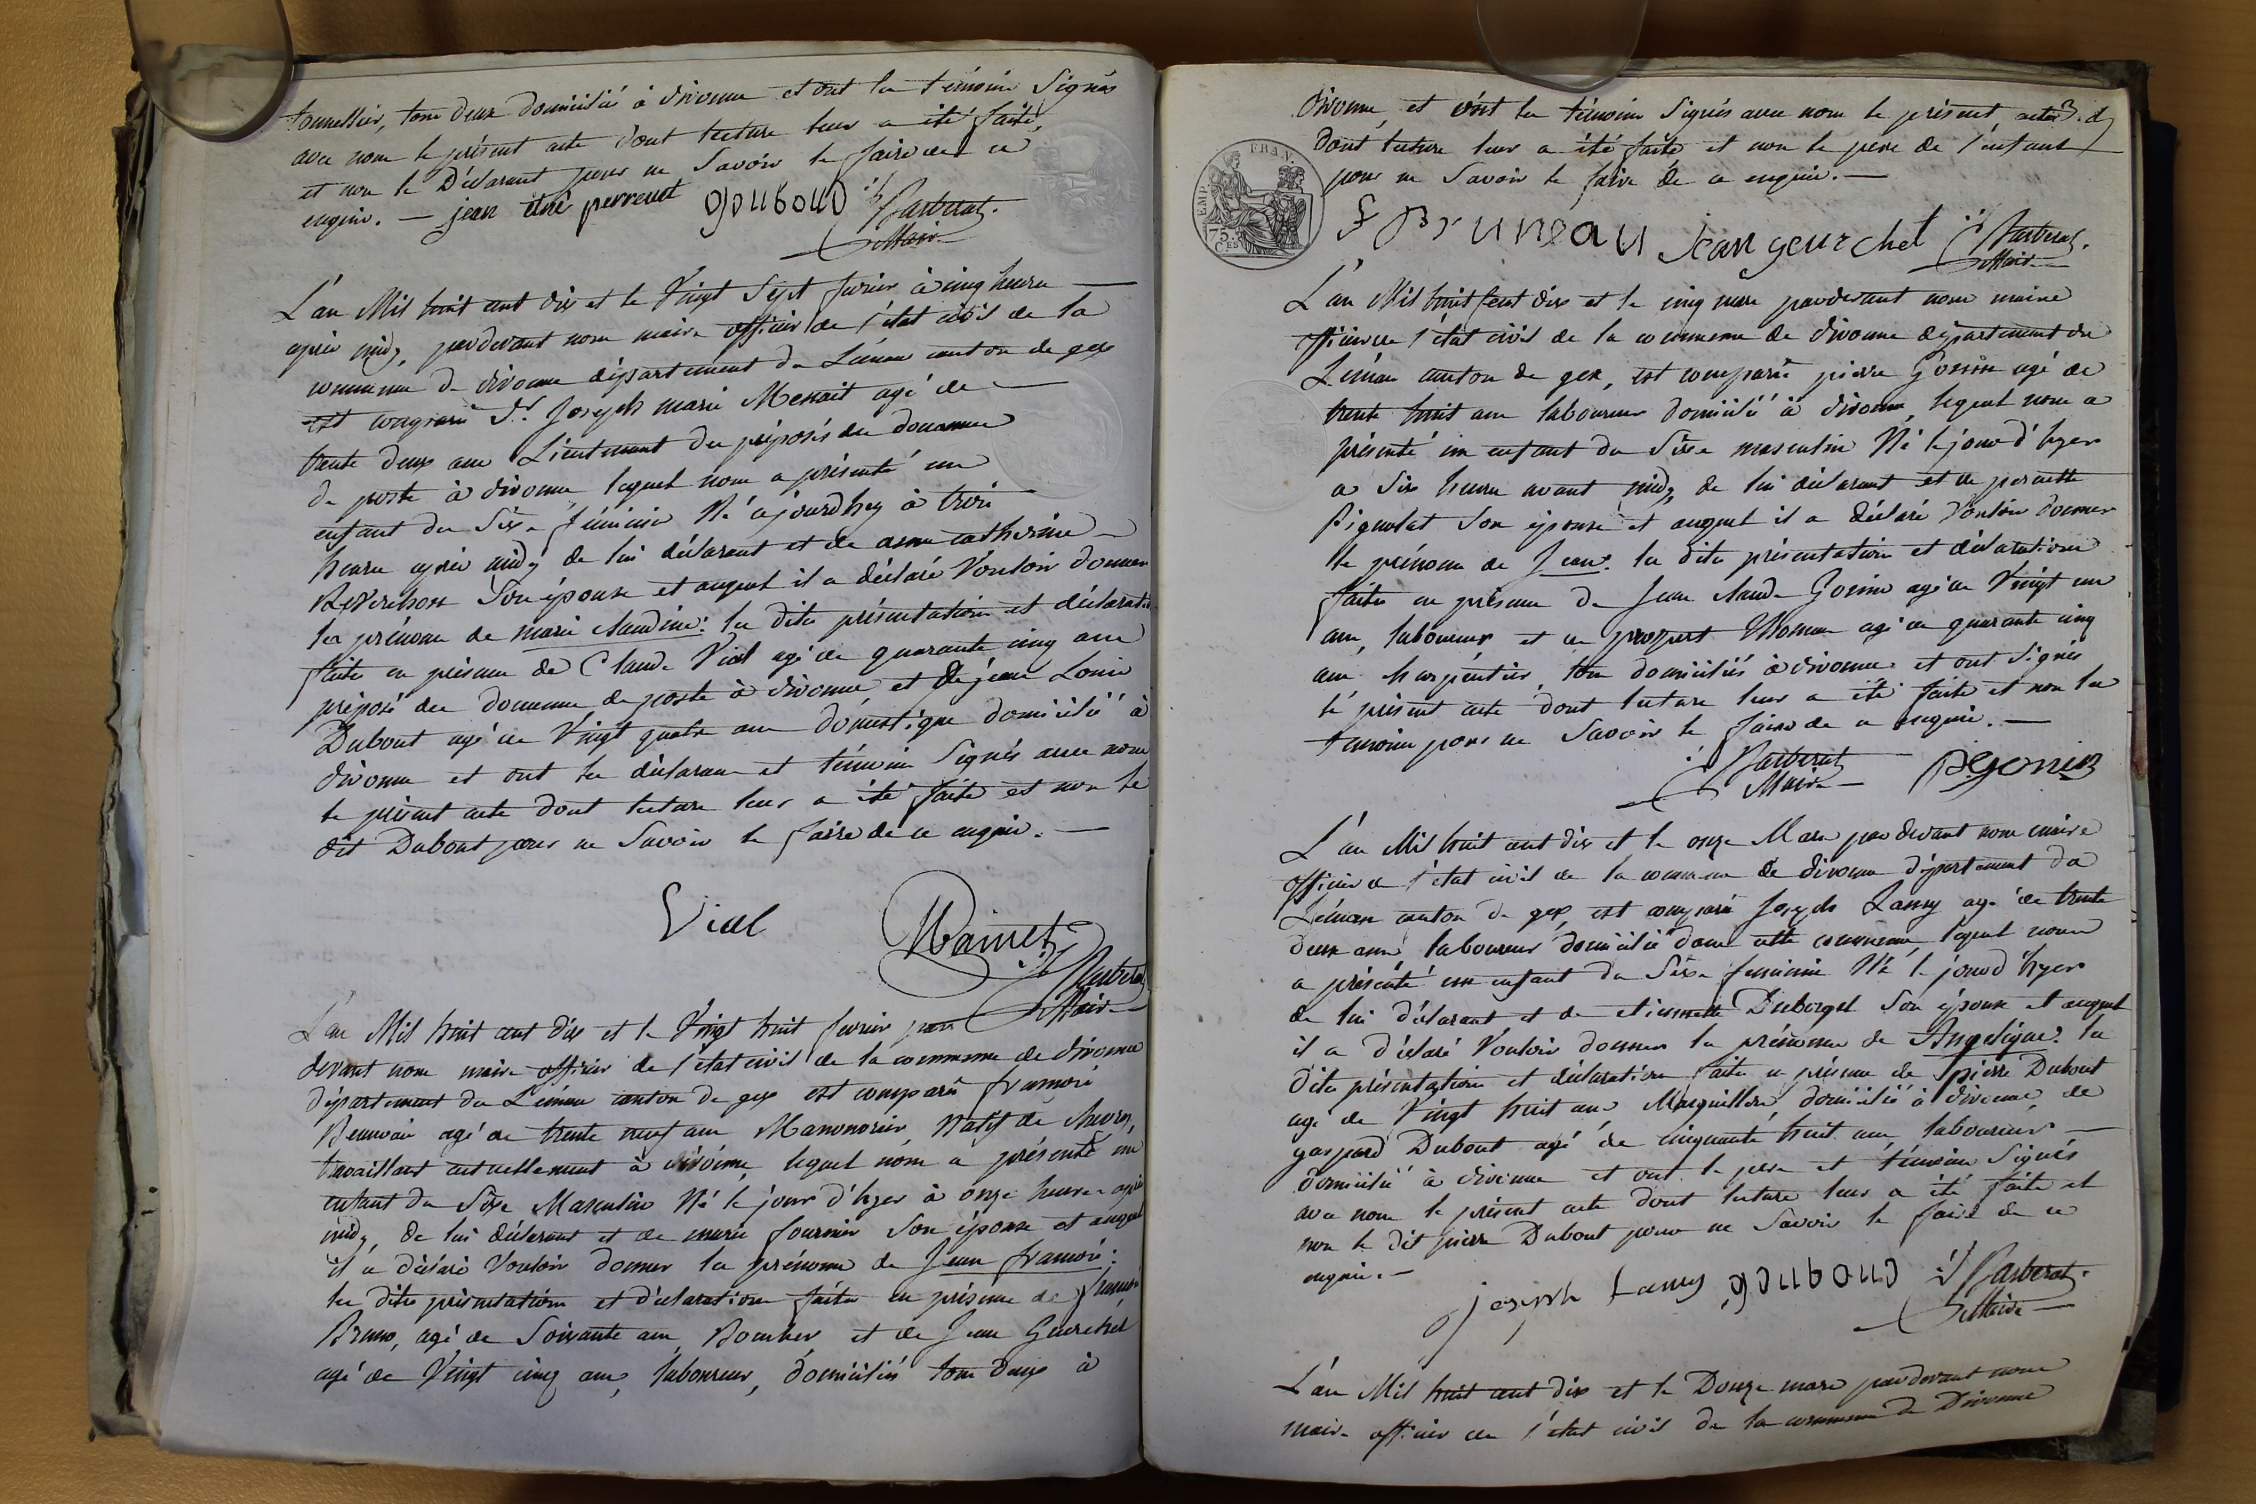 tonnellier, tous deux domiciliés à divonne et ont les témoins Signés
avec nous le présent acte dont lecture leur a été faite,
et non le Déclarant pour ne Savoir le faire de ce
enquis. — jean perrenet goubouo Barberat
Maire
L'an Mil huit cent dix et le Vingt Sept fevrier à cinq heures
après midy, pardevant nous maire officier de l'état civil de la
commune de divonne département du Léman canton de gex
est comparu Sr. Joseph marie agé de
trente deux ans Lieutenant des préposés des douannes
de poste à divonne, lequel nous a présenté un
enfant du Sèxe féminin Né ajourdhuy à trois
heures après midy de lui déclarant et de catherine
Son épouse et auquel il a déclaré Vouloir donner
les prénoms de marie claudine: les dites présentation et déclaration
faites en présence de Claude Vial agé de quarante cinq ans
préposé des douannes de poste à divonne et de jean Louis
Dubout agé de Vingt quatre ans domestique domicilié à
divonne et ont les déclarant et témoins Signés avec nous
le présent acte dont lecture leur a été faite et non le
dit Dubout pour ne Savoir le faire de ce enquis. —
Vial
Barberat
Maire
L'an Mil huit cent dix et le Vingt huit fevrier par
devant nous maire officier de l'état civil de la commune de divonne
département du Léman canton de gex est comparu françois
agé de trente neuf ans Natif de
travaillant actuellement à divonne, lequel nous a présenté un
enfant du Sèxe Masculin Né le jour d'hyer à onze heures après
midy, de lui déclarant et de marie fournier Son épouse et auquel
il a déclaré Vouloir donner les prénoms de Jean françois:
les dites présentation et déclaration faites en présence de françois
Bruno, agé de Soixante ans, et de Jean
agé de Vingt cinq ans, laboureur, domiciliés tous deux à
divonne, et ont les témoins Signés avec nous le présent acte
dont lecture leur a été faite et non le pere de l'enfant
pour ne Savoir le faire de ce enquis. —
FRAN.
EMP.
75. CES
f Bruneau Jean Barberat
Maire
L'an Mil huit Cent dix et le cinq mars pardevant nous maire
officier de l'état civil de la commune de divonne département du
Léman canton de gex, est comparu pierre Gonin agé de
trente huit ans laboureur domicilié à divonne, lequel nous a
présenté un enfant du Sèxe masculin Né le jour d'hyer
a Six heures avant midy de lui déclarant et de pernette
Son épouse et auquel il a déclaré Vouloir donner
le prénom de Jean. les dites présentation et déclaration
faites en présence de Jean claude Gonin agé de Vingt un
ans, laboureur et de prospert Thomas agé de quarante cinq
ans charpentier, tous domiciliés à divonne et ont Signés
le présent acte dont lecture leur a été faite et non les
témoins pour ne Savoir le faire de ce enquis. —
Barberat
Maire pgonin
L'an Mil huit cent dix et le onze Mars pardevant nous maire
officier de l'état civil de la commune de divonne département du
Léman canton de gex, est comparu Joseph Lamy agé de trente
deux ans, laboureur domicilié dans cette commune, lequel nous
a présenté un enfant du Sèxe feminin Né le jour d'hyer
de lui déclarant et de etiennette Son épouse et auquel
il a déclaré Vouloir donner le prénom de Angelique. les
dites présentation et déclaration faites en présence de pierre Dubout
agé de Vingt huit ans Marguillier domicilié à divonne, de
gaspard Dubout agé de cinquante huit ans laboureur
domicilié à divonne et ont le pere et témoins Signés
avec nous le présent acte dont lecture leur a été faite et
non le dit pierre Dubout pour ne Savoir le faire de ce
enquis. —
joseph Lamy goubouo Barberat
Maire
L'an Mil huit cent dix et le Douze mars pardevant nous
maire officier de l'état civil de la commune de Divonne